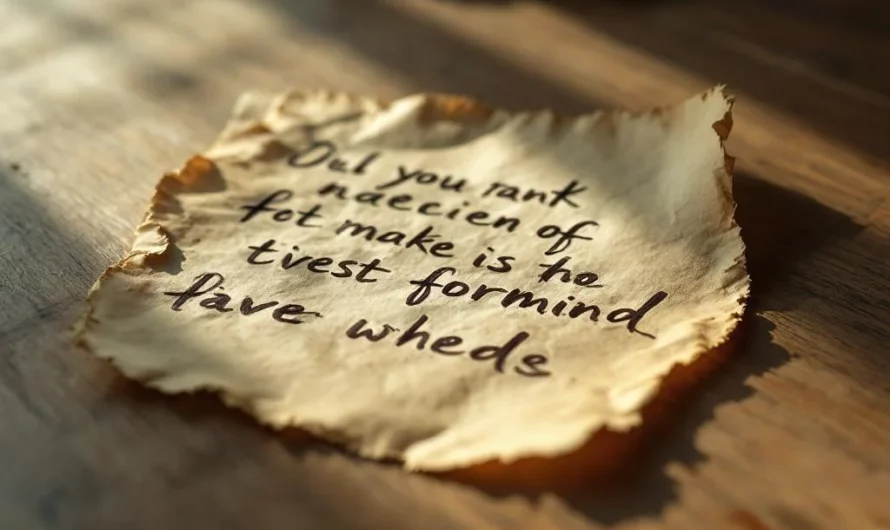 Oul you rank
naecien of
fot make is ho
tivest formind
fave wheds